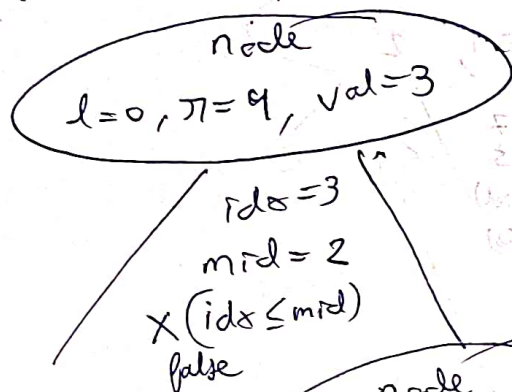 node
l=0, r=4, val=3
idx=3
mid=2
X (idx≤mid)
false
node